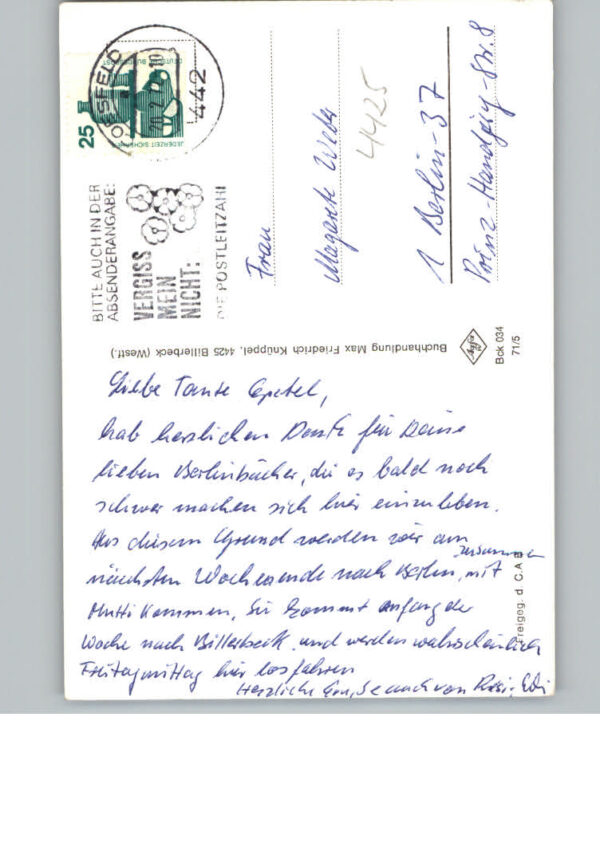 COESFELD
442
25
DEUTSCHE BUNDESPOST
JEDERZEIT SICHERHEIT
BITTE AUCH IN DER
ABSENDERANGABE:
VERGISS
MEIN
NICHT:
DIE POSTLEITZAHL
Frau
Magarete
4425
1 Berlin-37
Prinz-Handjery-Str. 8
Buchhandlung Max Friedrich Knüppel, 4425 Billerbeck (Westf.)
Agfa
Bck 034
71/5
Freigeg. d. C.A.
Liebe Tante Gretel,
hab herzlichen Dank für Deine
lieben Berlinbücher, die es bald noch
schwer machen sich hier einzuleben.
Aus diesem Grund werden wir am
nächsten Wochenende nach Berlin, mit zusammen
Mutti kommen, Sie kommt anfang der
Woche nach Billerbeck und werden wahrscheinlich
Freitagmittag hier losfahren
Herzliche auch von